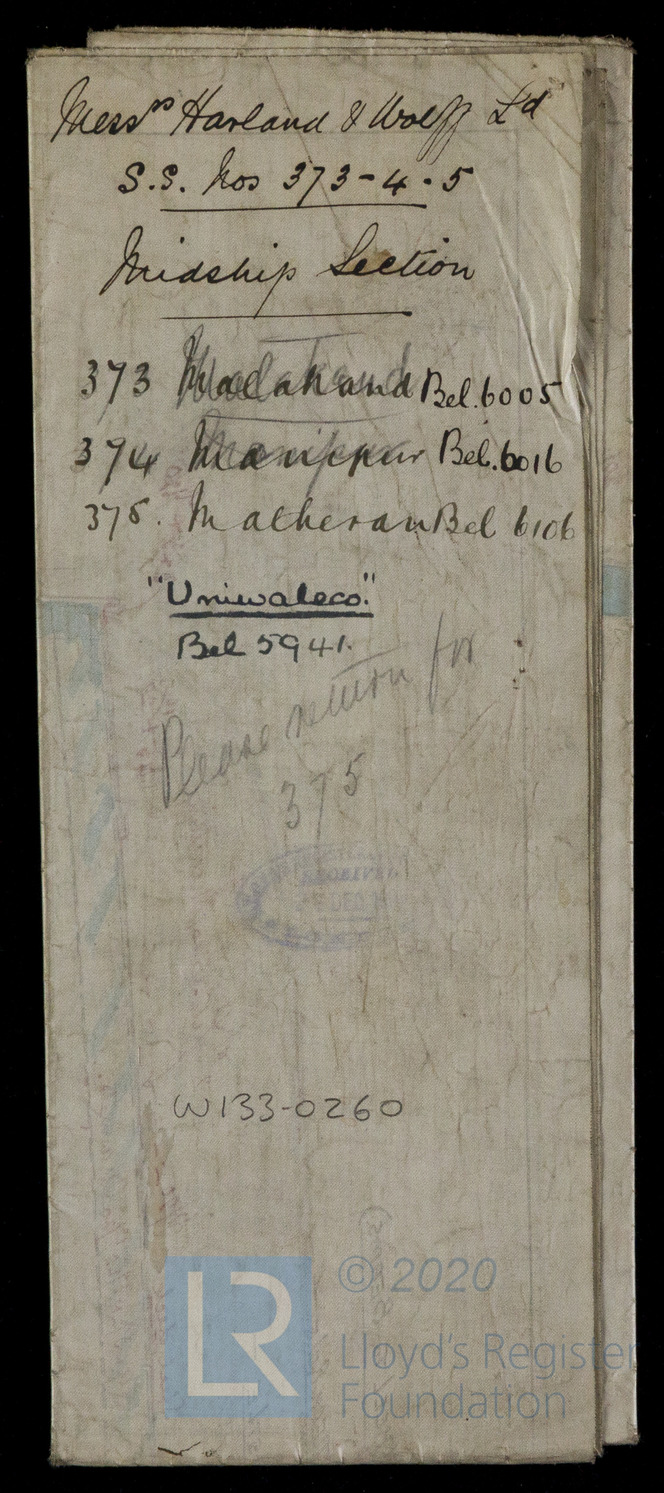 Messrs Harland & Wolff Ld
S.S. Nos 373-4-5
Midship Section
373 Malakand Bel. 6005
374 Manipur Bel. 6016
375. Matheran Bel 6106
"Uniwaleco."
Bel 5941.
Please return for
375
RECEIVED
DEC
W133-0260
LR
© 2020
Lloyd's Register
Foundation